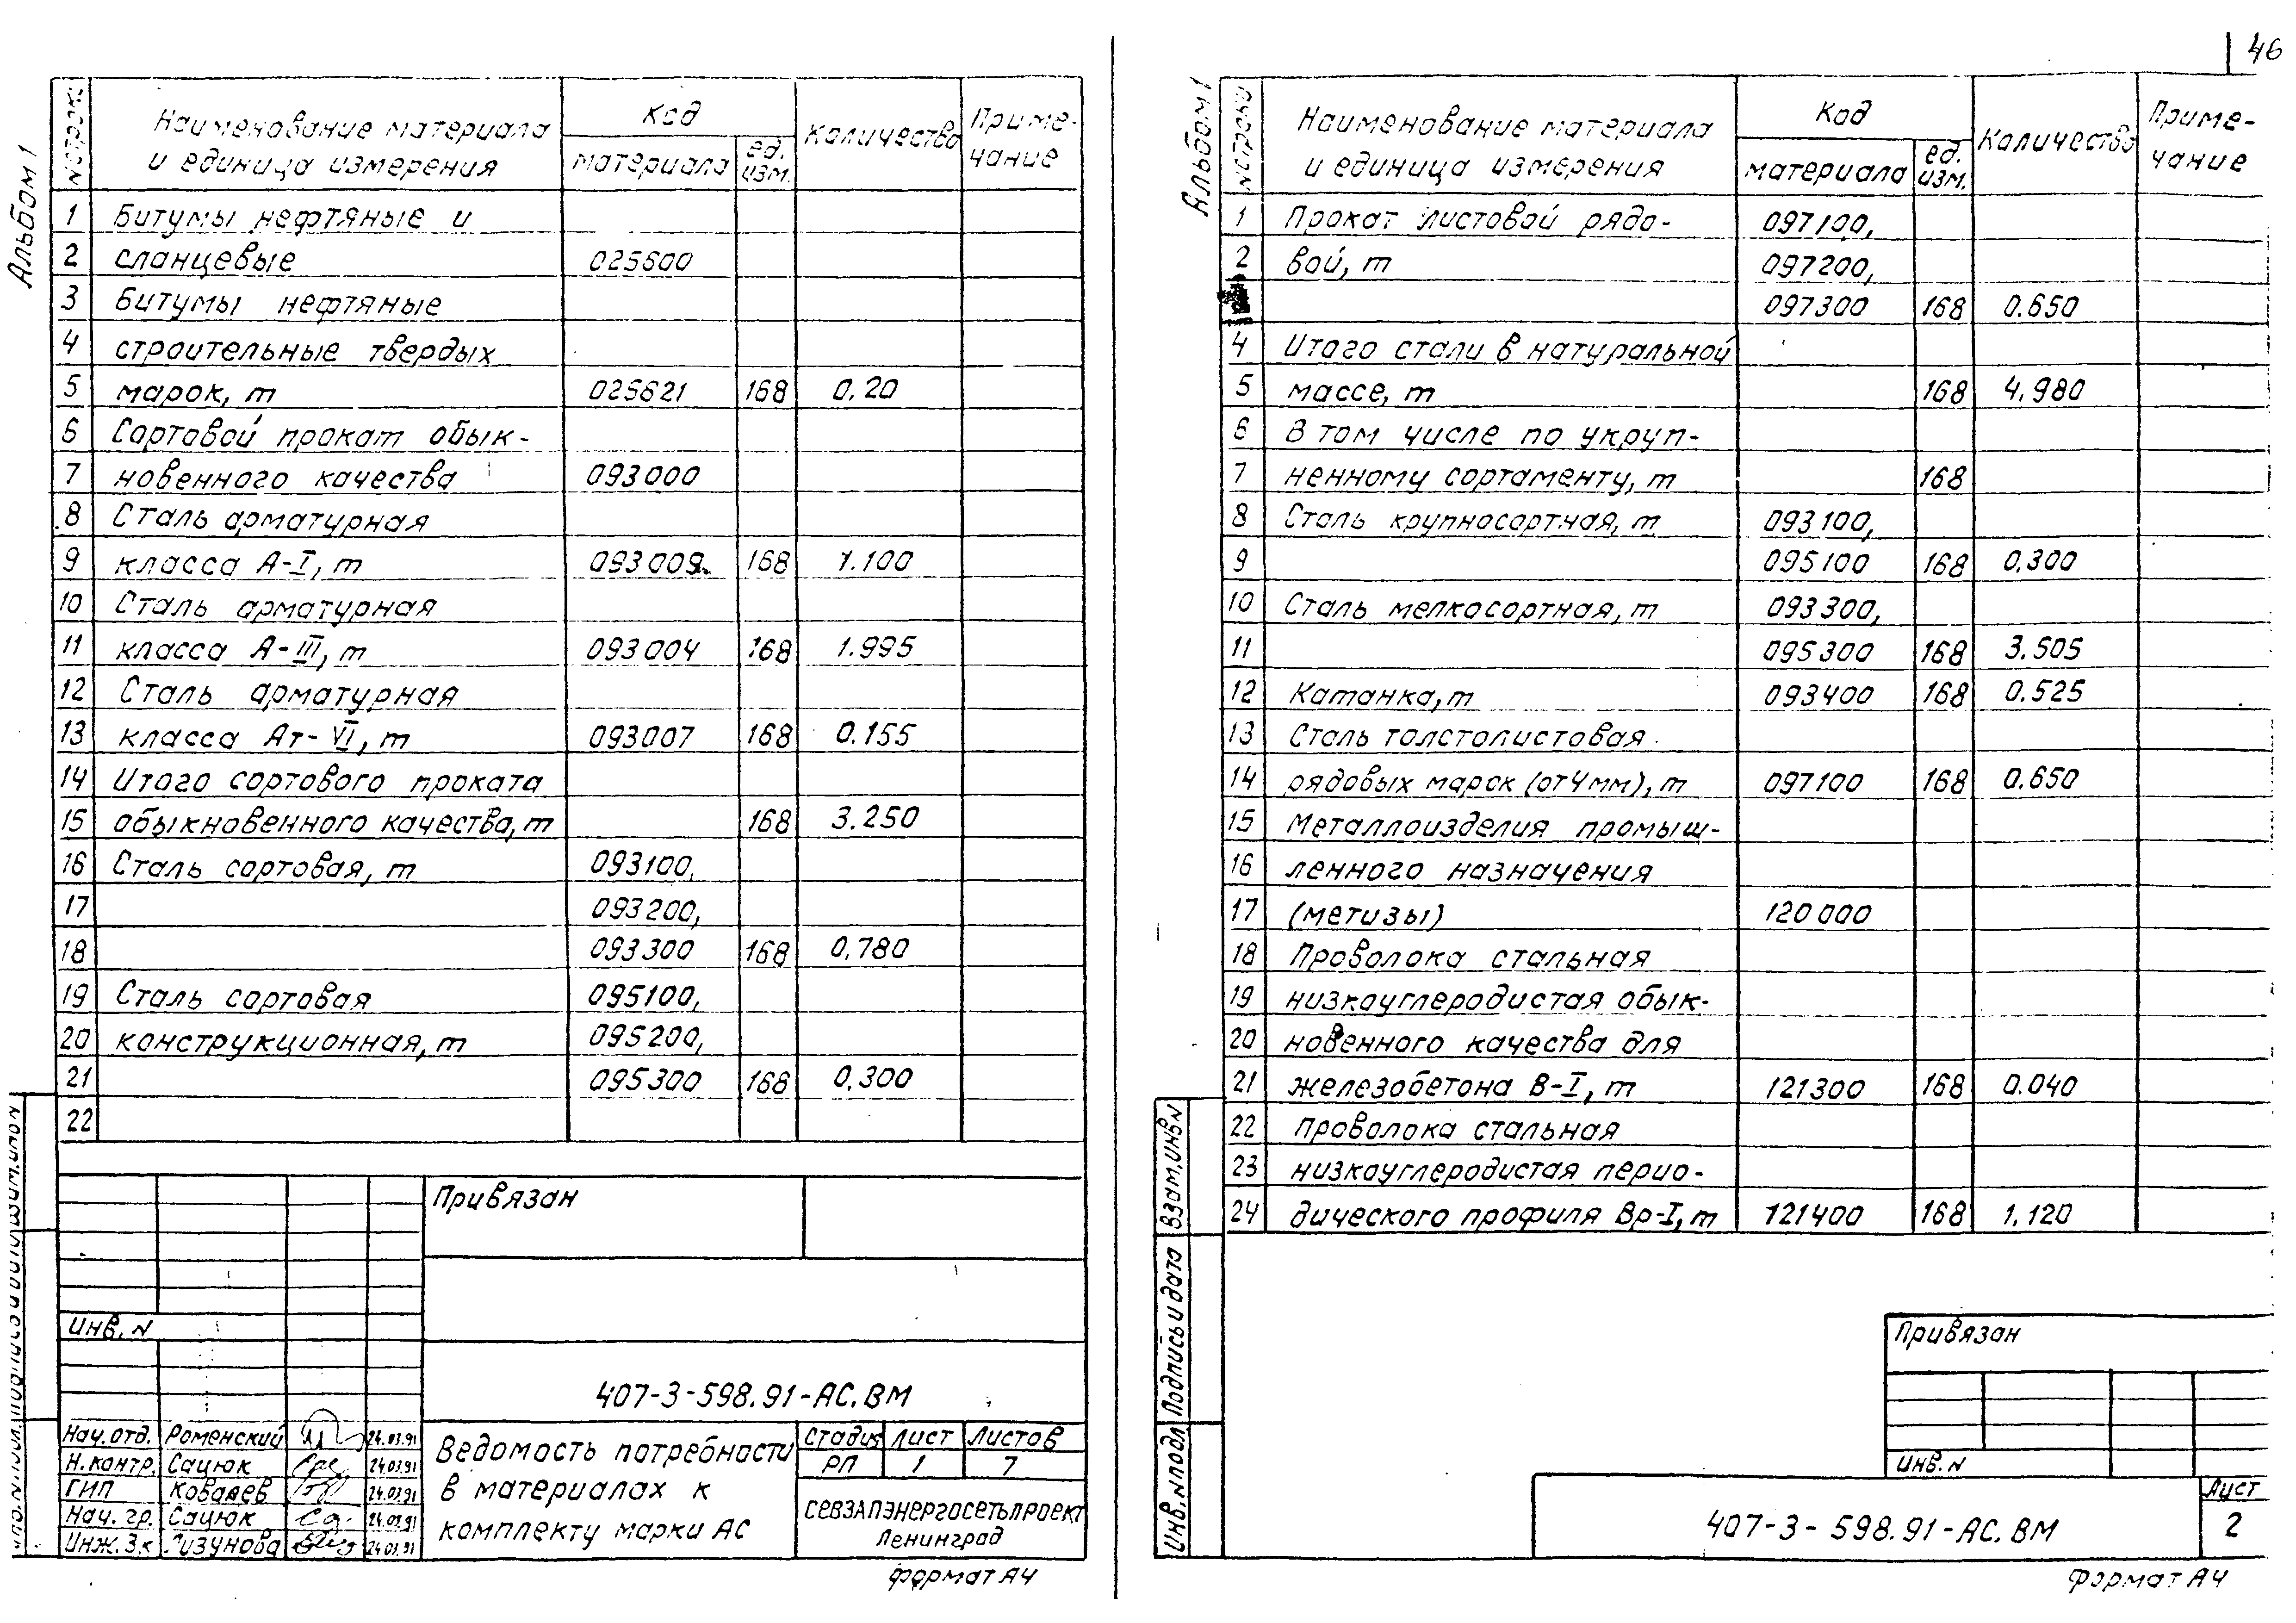 46
Альбом 1
N строки | Наименование материала и единица измерения | Код материала | Код ед. изм. | Количество | Примечание
1 Битумы нефтяные и
2 сланцевые 025600
3 Битумы нефтяные
4 строительные твердых
5 марок, т 025621 168 0.20
6 Сортовой прокат обык-
7 новенного качества 093000
8 Сталь арматурная
9 класса А-I, т 093009 168 1.100
10 Сталь арматурная
11 класса А-III, т 093004 168 1.995
12 Сталь арматурная
13 класса Ат-VI, т 093007 168 0.155
14 Итого сортового проката
15 обыкновенного качества, т 168 3.250
16 Сталь сортовая, т 093100,
17 093200,
18 093300 168 0,780
19 Сталь сортовая 095100,
20 конструкционная, т 095200,
21 095300 168 0,300
22
Привязан
Инв. N
407-3-598.91-АС.ВМ
Нач. отд. Роменский 24.03.91
Н. контр. Сацюк 24.03.91
ГИП Ковалев 24.03.91
Нач. гр. Сацюк 24.03.91
Инж. 3.к Лизунова 24.03.91
Ведомость потребности
в материалах к
комплекту марки АС
Стадия Лист Листов
РП 1 7
СЕВЗАПЭНЕРГОСЕТЬПРОЕКТ
Ленинград
Формат А4
Альбом 1
N строки | Наименование материала и единица измерения | Код материала | Код ед. изм. | Количество | Примечание
1 Прокат листовой рядо- 097100,
2 вой, т 097200,
097300 168 0.650
4 Итого стали в натуральной
5 массе, т 168 4.980
6 В том числе по укруп-
7 ненному сортаменту, т 168
8 Сталь крупносортная, т 093100,
9 095100 168 0,300
10 Сталь мелкосортная, т 093300,
11 095300 168 3.505
12 Катанка, т 093400 168 0.525
13 Сталь толстолистовая
14 рядовых марок (от 4 мм), т 097100 168 0.650
15 Металлоизделия промыш-
16 ленного назначения
17 (метизы) 120000
18 Проволока стальная
19 низкоуглеродистая обык-
20 новенного качества для
21 железобетона В-I, т 121300 168 0.040
22 Проволока стальная
23 низкоуглеродистая перио-
24 дического профиля Вр-I, т 121400 168 1.120
Взам. инв N
Подпись и дата
Инв. N подл
Привязан
Инв. N
407-3-598.91-АС.ВМ
Лист
2
Формат А4